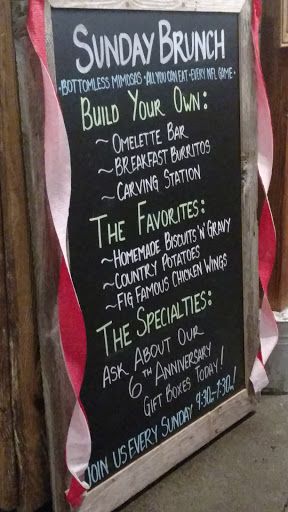 SUNDAY BRUNCH
·BOTTOMLESS MIMOSAS·ALL YOU CAN EAT·EVERY NFL GAME·
BUILD YOUR OWN:
~OMELETTE BAR
~BREAKFAST BURRITOS
~CARVING STATION
THE FAVORITES:
~HOMEMADE BISCUITS 'N' GRAVY
~COUNTRY POTATOES
~FIG FAMOUS CHICKEN WINGS
THE SPECIALTIES:
ASK ABOUT OUR
6TH ANNIVERSARY
GIFT BOXES TODAY!
JOIN US EVERY SUNDAY 9:30-1:30!